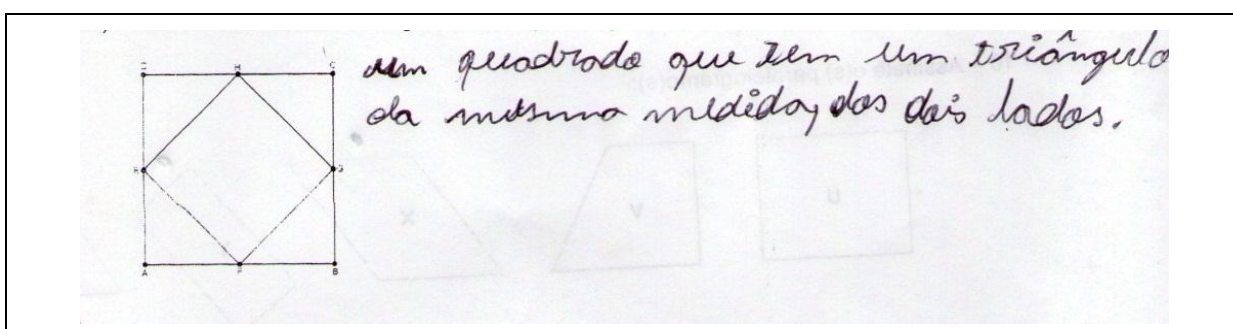 H C
um quadrado que tem um triângulo
da mesma medida, dos dois lados.
G
A F B
X V U